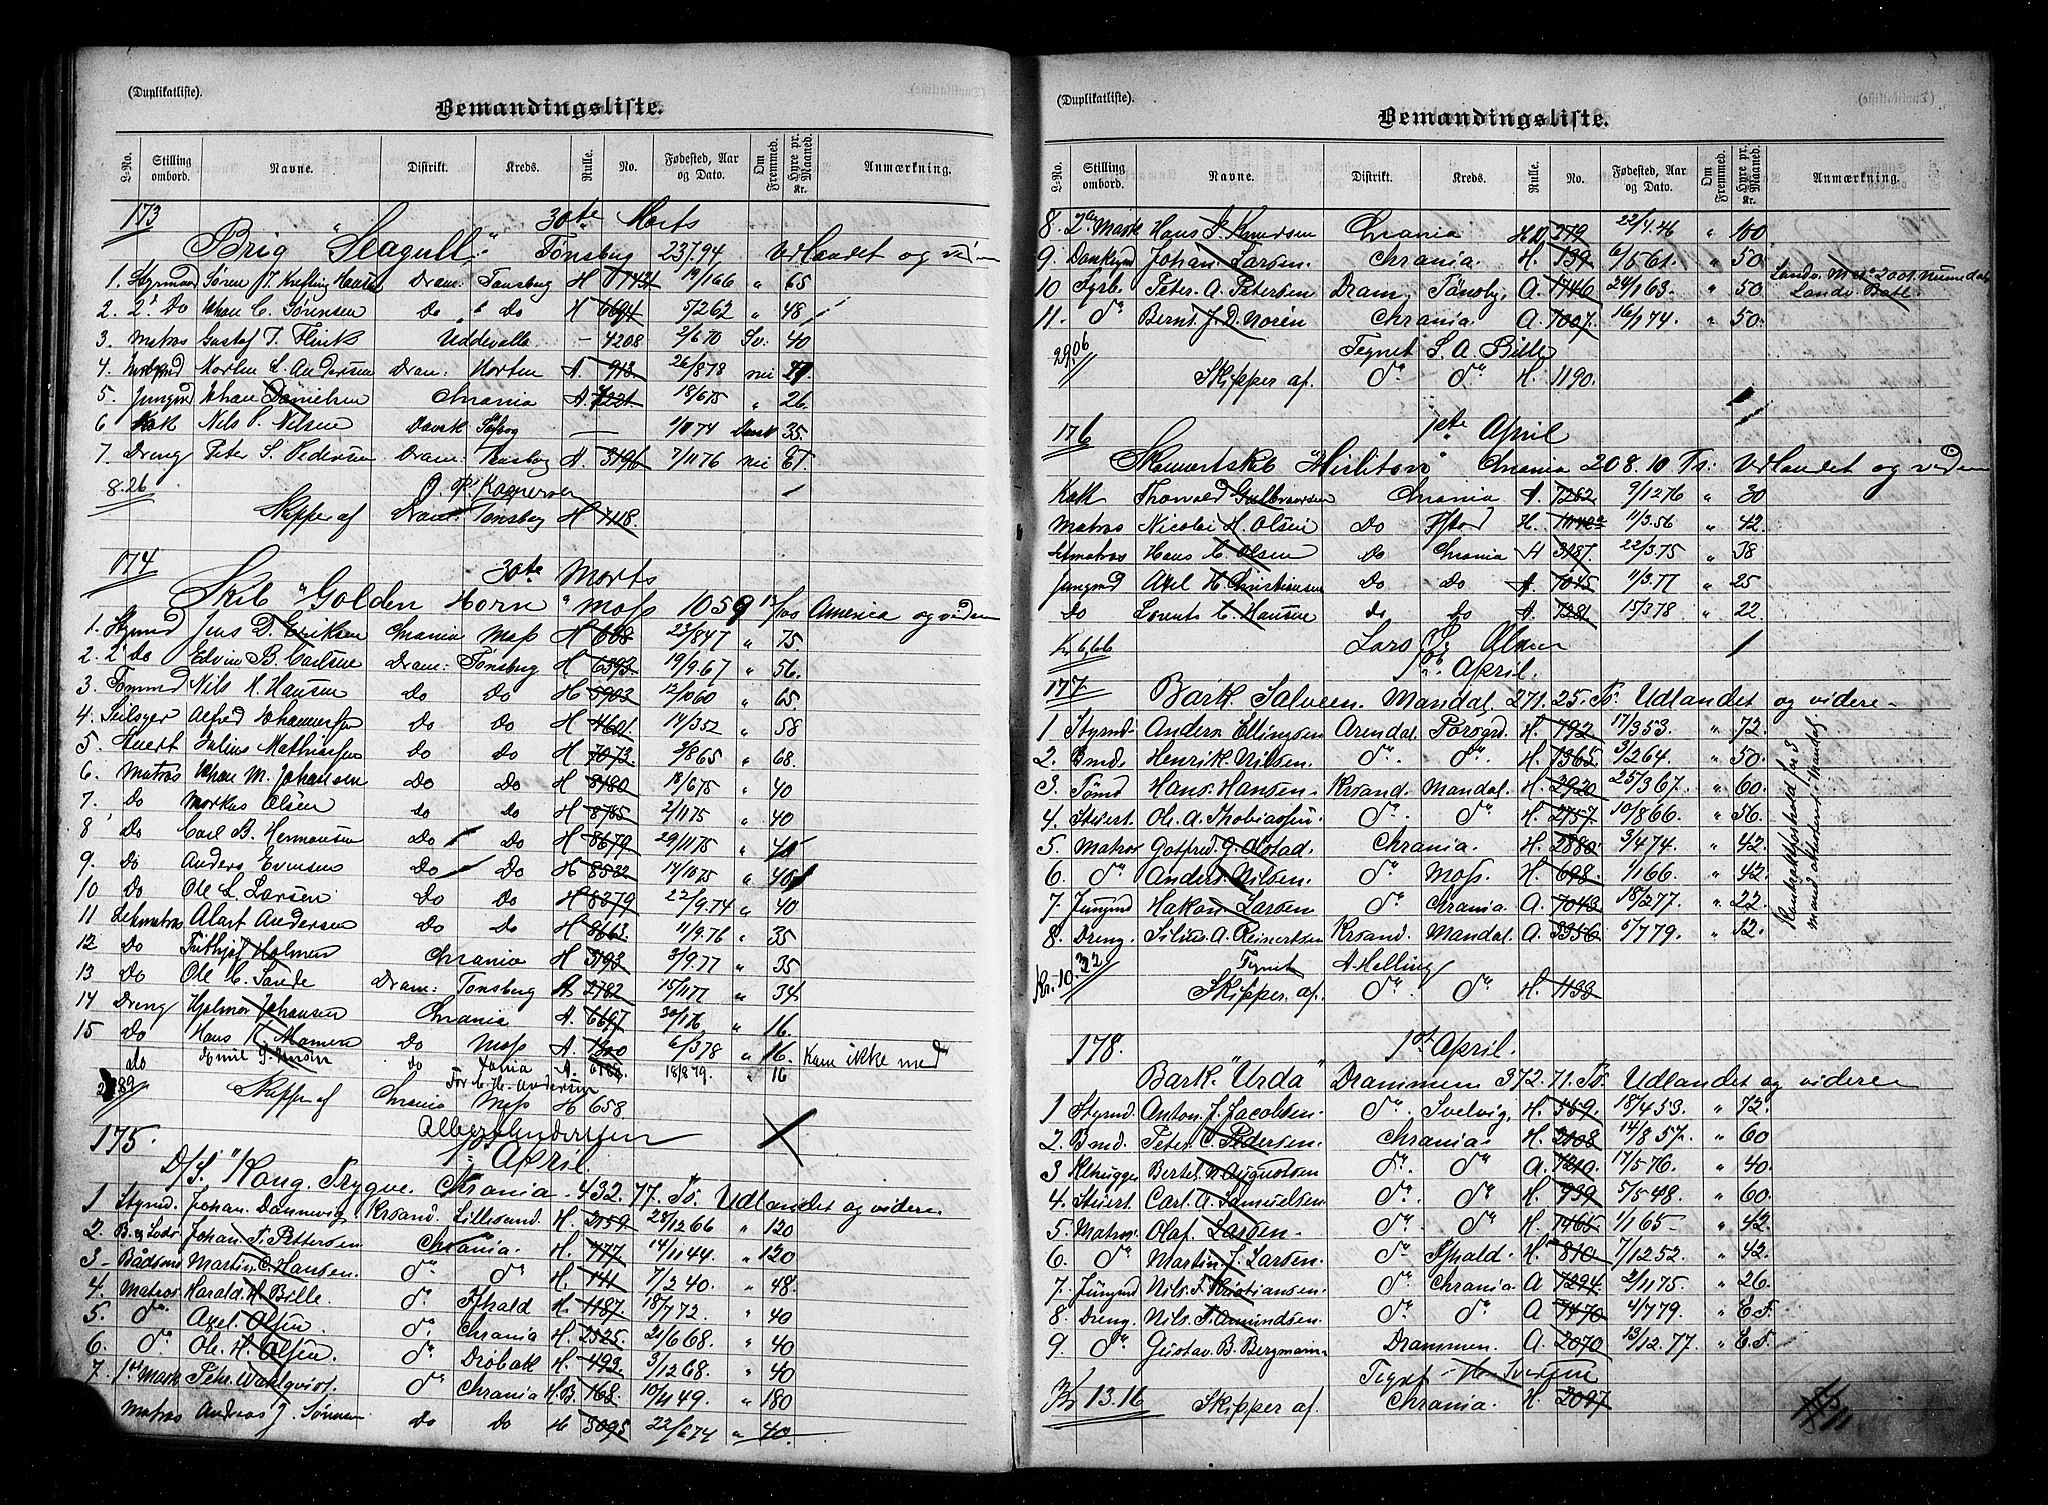 (Duplikatliste).
Bemandingsliste.
L-No. Stilling ombord. Navne. Distrikt. Kreds. Rulle. No. Fødested, Aar og Dato. Om Fremmed. Hyre pr. Maaned. Kr. Anmærkning.
173 30te Marts
Brig "Seagull" Tønsberg 237.94 Udlandet og videre
1. Styrmand Søren J. Dram: Tønsberg H 7743 19/1 66 " 65
2. 2d Do Johan C. Sørensen Do " Do H 6694 5/2 62 " 48
3. Matros Gustaf T. Flink Uddevalla - 4208 2/6 70 Sv. 40
4. Morten L. Andersen Dram: Horten A. 913 26/8 78 nei 27
5. Jungmd Johan Danielsen Chrania A. 7221 18/6 75 " 26.
6 Kok Nils P. Nilsen Dansk — 1/11 74 Dansk 35.
7. Dreng Peter S. Pedersen Dram: Tønsberg A. 3196 7/11 76 nei
8.26 O. Kaspersen
Skipper af Dram: Tønsberg H 7118.
174 30te Marts
Skib "Golden Horn" Moss 1059 America og videre
1. Styrmd Jens D. Eriksen Chrania Moss H 668 23/8 47 " 75
2. 2d Do Edvin B. Carlsen Dram: Tønsberg H 6393 19/9.67 " 56.
3 Tømmd Nils A. Hansen Do Do H 5903 12/10 60 " 65
4. Seilsyer Alfred Johannessen Do Do H 4601 14/3 52 " 58
5. Stuert Julius Mathiassen Do Do H 7073 3/8 65 " 68.
6. Matros Johan M. Johansen Do Do H 8180 18/6 75 " 40
7. Do Markus Olsen do do H 8785 2/11 75 " 40
8 Do Carl B. Hermansen Do Do H 8679 29/11 75 " 40
9. Do Anders Evensen Do Do H 8582 14/10 75 " 40
10 Do Ole L. Larsen Do Do H 8279 22/9.74 " 40
11 Letmatros Alart Andersen Do Do H 8663. 11/9.76 " 35
12 Do Fridthjof Holmen Chrania H 3193 3/9.77 " 35
13 Do Ole C. Sande Dram: Tønsberg A. 2782 15/11 77 " 34
14 Dreng Hjalmar Johansen Chrania A. 6697 30/1 76 " 16.
15 Do Hans K. Hansen Do Moss A. 1300 6/3 78 " 16. Kom ikke med
do Emil do A. 18/8 79. " 16
For C. H. Andersen
Skipper af Chrania Moss H 658
Albert Andersen
175. 1ste April
D/S. "Kong Trygve" Chrania 432.77. Ts. Udlandet og videre
1 Styrmd. Johan Dannevig Krsand. Lillesand. H. 2159 28/12 66 " 120
2. B. og Lods Johan F. Pettersen Chrania. H. 777 14/11 44. " 120
3 - Bådsmd Martin C. Hansen. do do H. 141 7/2 40. " 48.
4. Matros Harald H. Bille. do. Fshald H. 1187. 18/7 72. " 40
5. do Axel Olsen. do. Chrania H. 2525. 21/6 68. " 40
6. do Ole H. Olsen. do. Drøbak H. 493. 3/12 68. " 40
7. 1st Mask Petr. Wahlqvist. do Chrania H.B 168. 10/11 49. " 180
Matros Andreas J. Sønnen Do Do H 3095 22/6 74 " 40.
(Duplikatliste).
Bemandingsliste.
L-No. Stilling ombord. Navne. Distrikt. Kreds. Rulle. No. Fødested, Aar og Dato. Om Fremmed. Hyre pr. Maaned. Kr. Anmærkning.
8. 2den Mask Hans J. Knudsen Chrania H.B 279 22/4.46 " 100
9. Donkymd Johan Larsen. Chrania. H. 739 6/5 61. " 50
10 Fyrb. Peter A. Petersen Dram. Tønsbg. A. 1746 24/1 63. " 50 Landv. 2001. Numedals Landv. Batl.
11. do Bernt J. D. Norén Chrania. A. 7007. 16/1 74. " 50.
29.06 Tegnet S. A. Bille
Skipper af. do do H. 1190.
176 1ste April
Skonnertskib "Hirlitoro" Chrania 208.10 Ts: Udlandet og videre
Kok Thorvald Gulbrandsen Chrania A. 7262 9/12 76 " 30
Matros Nicolai H. Olsen Do H. 11/3.56 " 42.
Letmatros Hans C. Olsen Do Chrania H 3187. 22/3.75 " 38
Jungmd Axel H. Christiansen Do Do A. 7045 11/3.77 " 25
Do Lorents C. Hansen do do A. 7281 15/3 78 " 22.
Kr 6,66 Lars Olsen
1ste April.
177. Bark Salveen. Mandal. 271.25. Ts. Udlandet og videre -
1. Styrmd Anders Ellingsen Arendal Porsgrd. H. 792 17/3 53. " 72.
2. Bmd. Henrik Nilsen. do. do. H. 1365. 3/2 64. " 50.
3. Tømd Hans Hansen Krsand. Mandal. H. 2920 25/3 67. " 60.
4. Stuert. Ole A. Thobiassen do. do H. 2757. 10/8 66. " 56.
5. Matros Gotfred G. Chrania. H. 2880. 3/4 74. " 42.
6. do Anders Nilsen. do Moss. H. 698. 1/1 66. " 42.
7. Jungmd Hakon Larsen do Chrania. A. 7043 18/2 77. " 22.
8. Dreng. Silius A. Reinertsen Krsand. Mandal. A. 3356 5/7 79. " 12.
Kontraktforhold for 3 mand attesteret i Mandal
Kr. 10.32 Tegnet A. Helling
Skipper af. do. do H. 1133
178. 1st April.
Bark "Urda" Drammen 372.71. Ts. Udlandet og videre
1 Styrmd. Anton J. Jacobsen. do. Svelvig. H. 559. 18/4 53. " 72.
2. Bmd. Peter C. Pedersen. Chrania. H. 2108 14/8 57. " 60
3 Klhugger Bertel Augustsen do. do A. 7210. 17/5 76. " 40.
4. Stuert. Carl A. Samuelsen do do H. 939 5/5 48. " 60
5. Matros. Olaf Larsen do do H. 1465. 1/1 65. " 42.
6. do Martin J. Larsen. do Fshald. H. 810. 7/12 52. " 42.
7. Jungmd Nils F. Kristiansen. do Chrania A 7294. 2/11 75. " 26.
8. Dreng. Nils T. Amundsen. do do A 7470 4/7 79. " E.F.
9. do Gustav B. Bergmann Drammen. A. 2070 13/12.77. " E.F.
Tegnet H. Iversen
Kr 13.16 Skipper af. Chrania. H. 2097